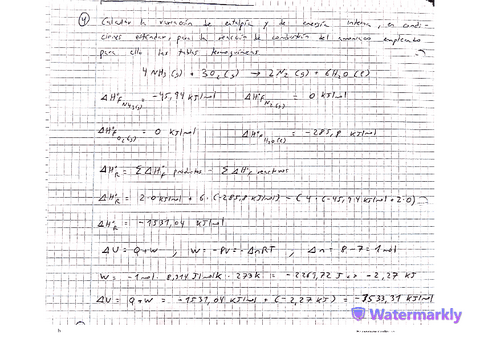 ④ Calcular la variación de entalpía y de energía interna, en condi-
ciones estándar, para la reacción de combustión del amoniaco empleando
para ello las tablas termoquímicas
4 NH3 (g) + 3O2 (g) → 2N2 (g) + 6H2O (l)
ΔH°f NH3(g) = -45,94 KJ/mol ΔH°f N2(g) = 0 KJ/mol
ΔH°f O2(g) = 0 KJ/mol ΔH°f H2O(l) = -285,8 KJ/mol
ΔH°R = ΣΔH°f productos - ΣΔH°f reactivos
ΔH°R = 2·0 KJ/mol + 6·(-285,8 KJ/mol) - (4·(-45,94 KJ/mol + 2·0)
ΔH°R = -1531,04 KJ/mol
ΔU = Q+W , W = -PV = -ΔnRT , Δn = 8-7 = 1mol
W = -1mol · 8,314 J/molK · 273K = -2269,72 J = -2,27 KJ
ΔU = Q+W = -1531,04 KJ/mol + (-2,27 KJ) = -1533,31 KJ/mol
Watermarkly